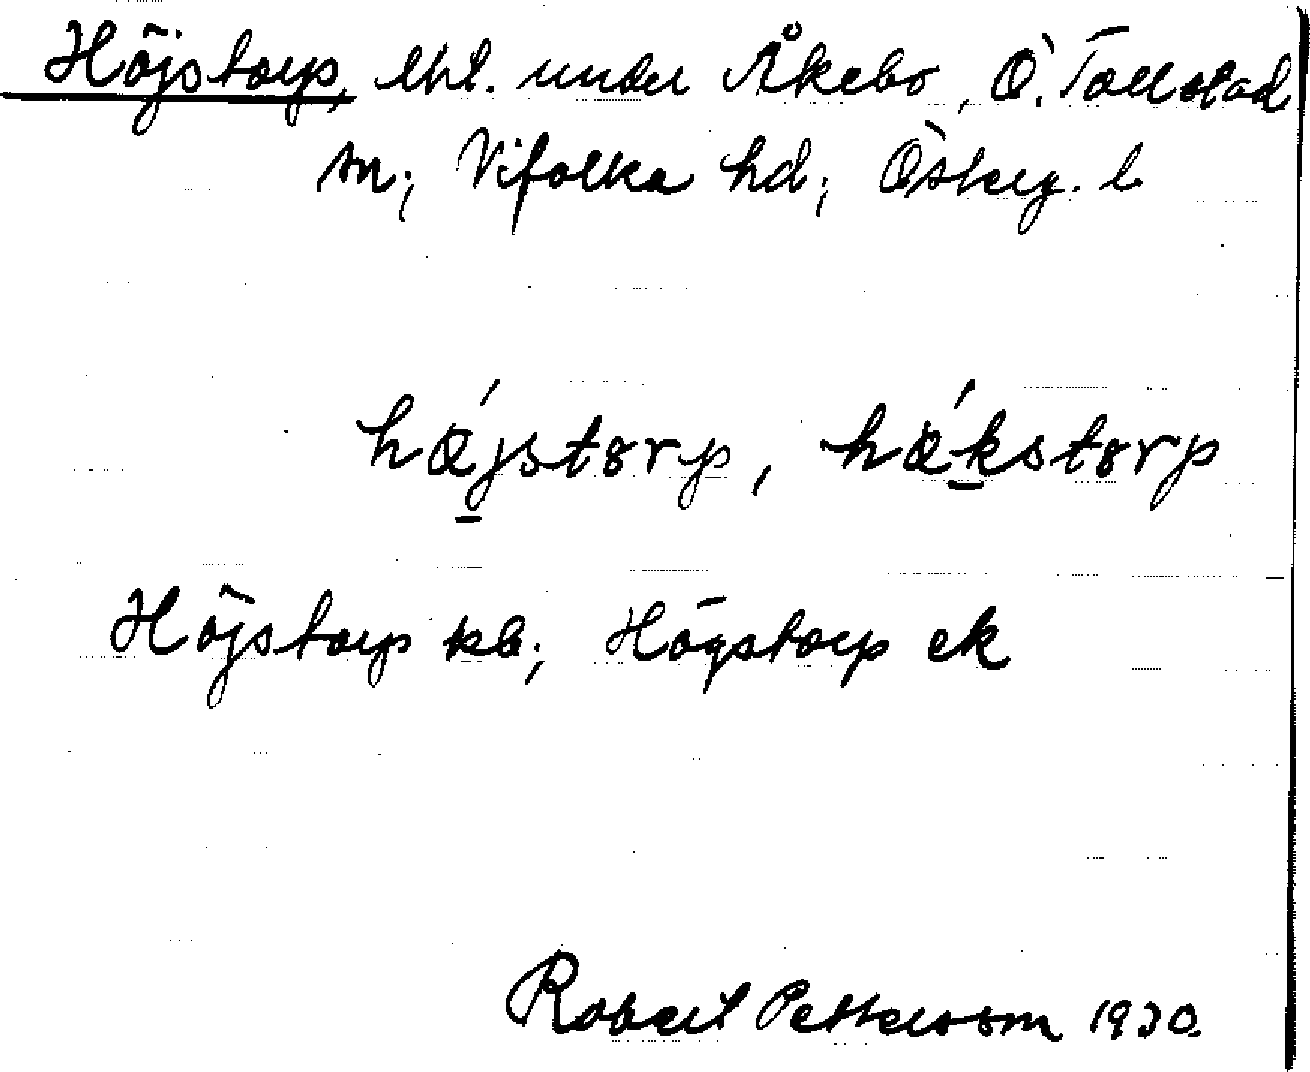 Höjstorp, lht. under Åkebo, Ö. Tollstad
sn; Vifolka hd; Österg. l.
hǿjstørp, hǿkstørp
Höjstorp kb; Högstorp ek
Robert Pettersson 1930.